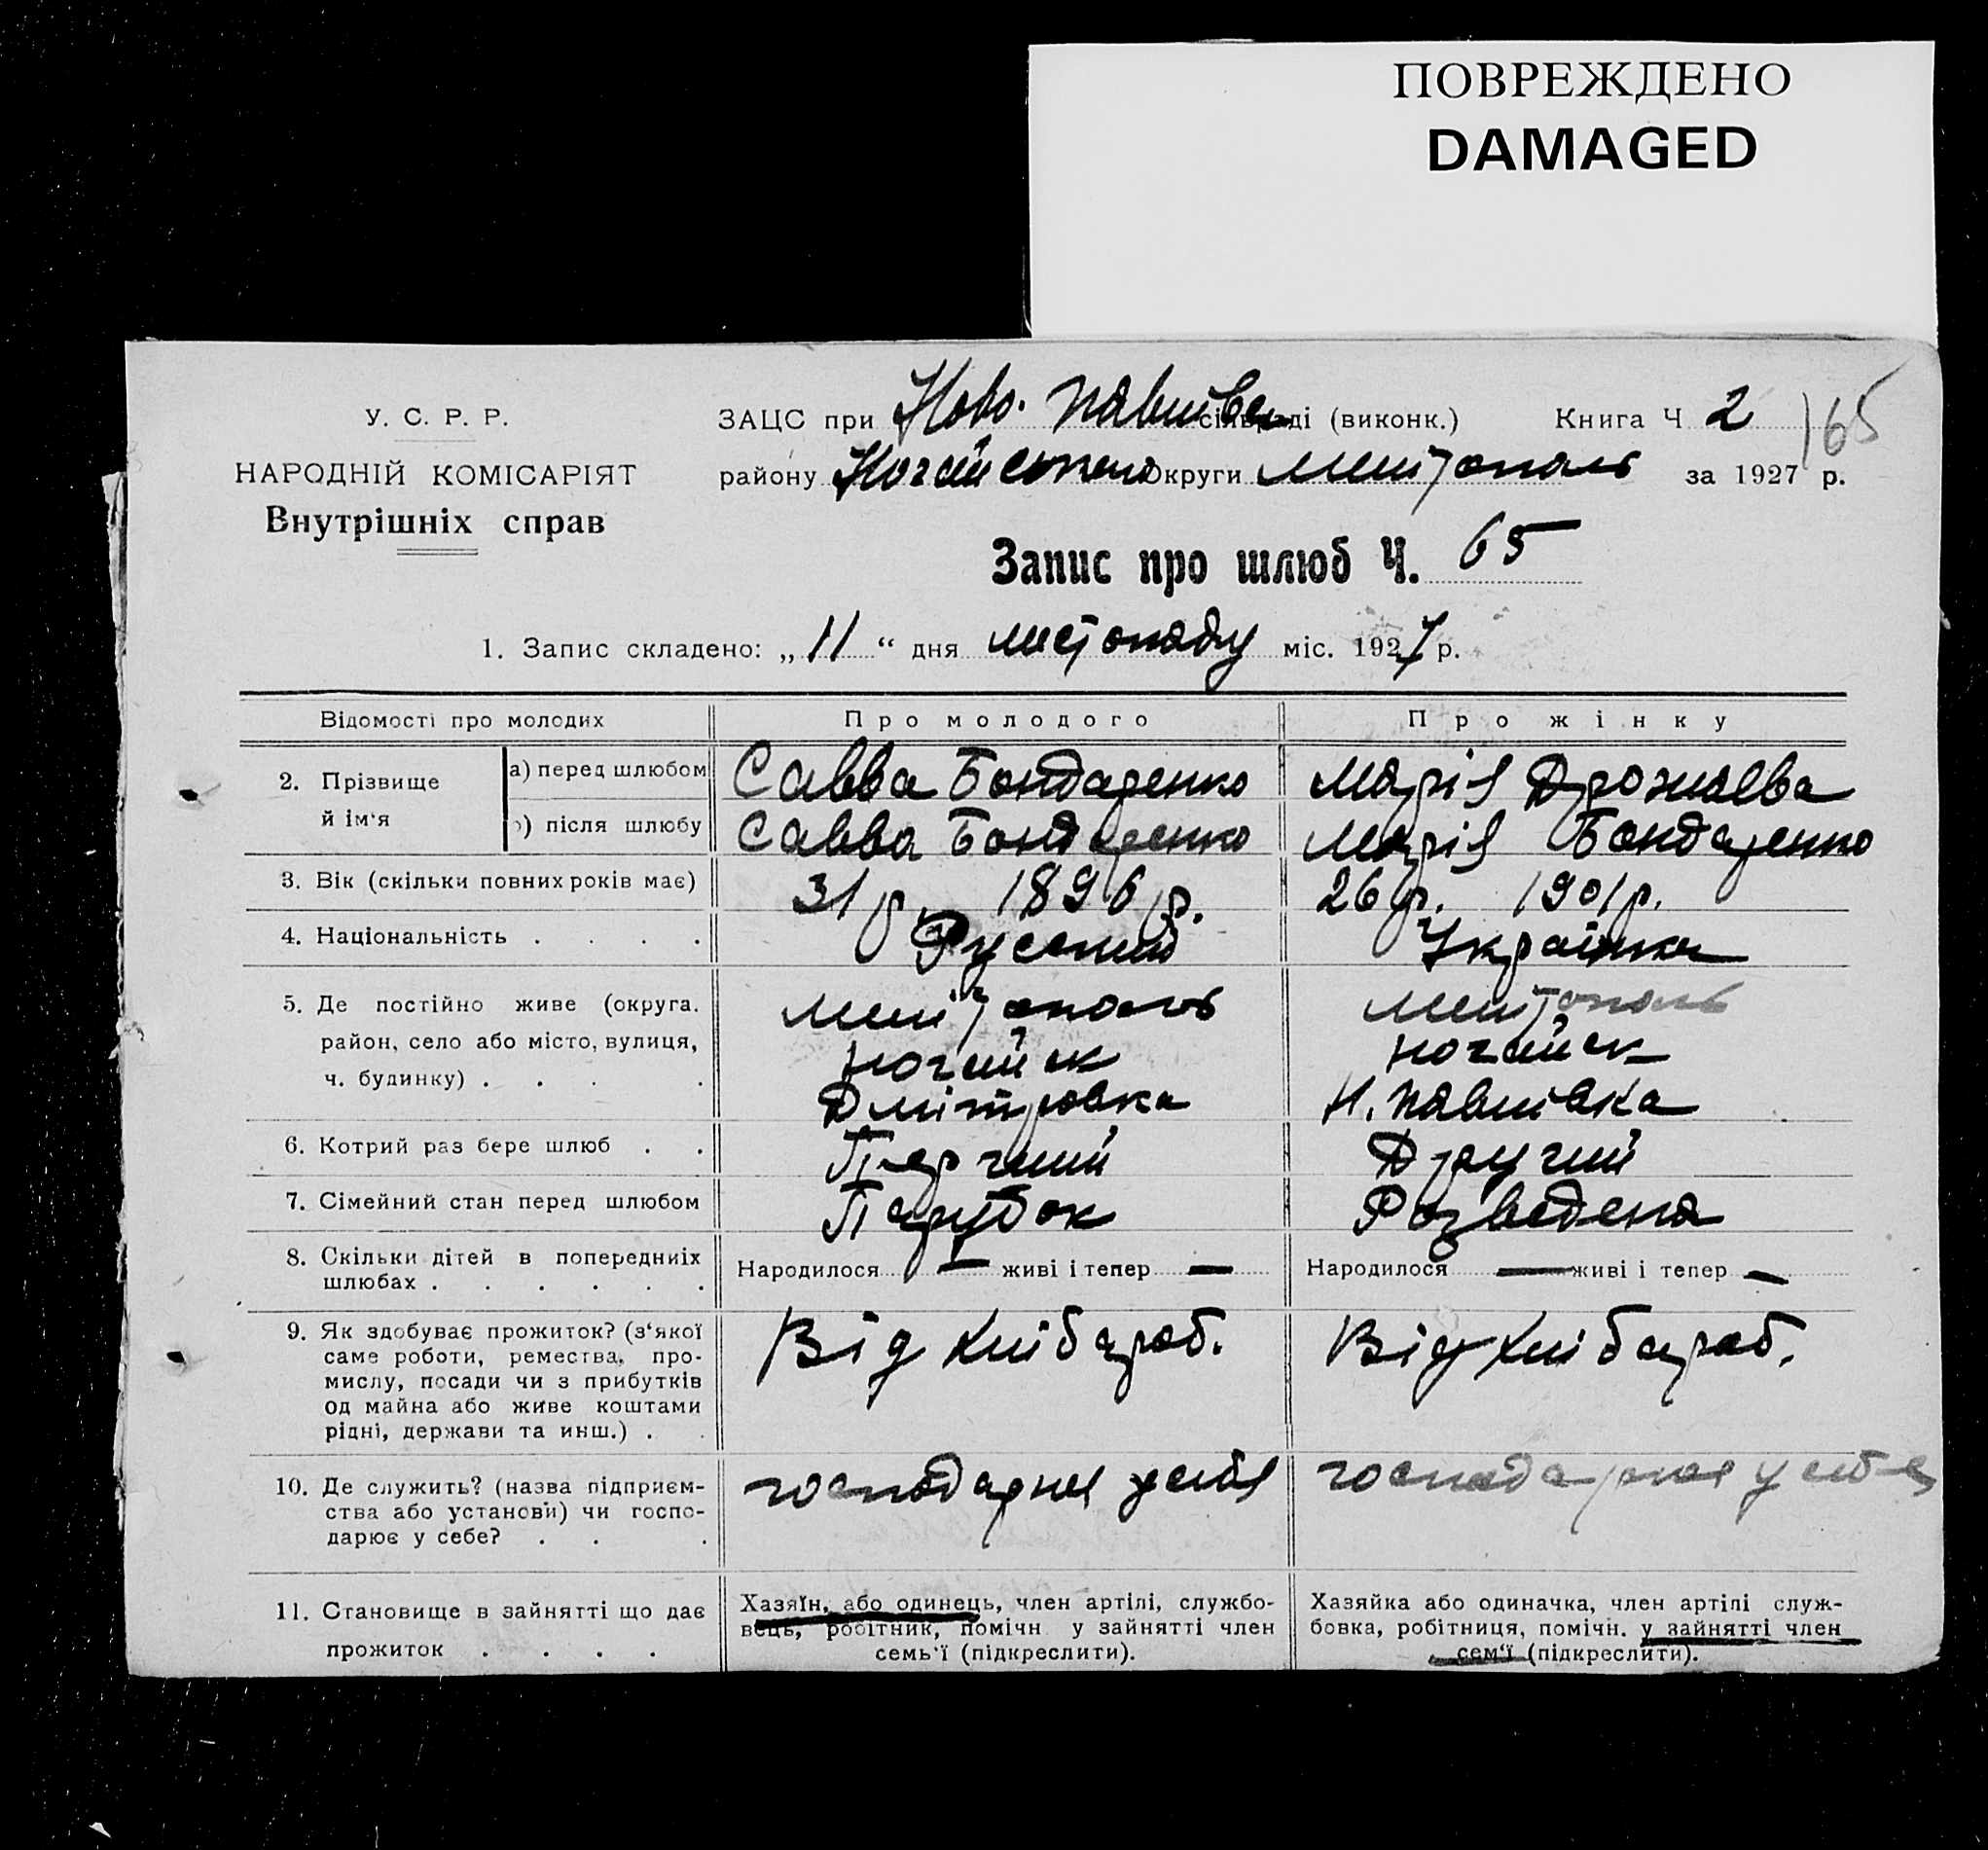 ПОВРЕЖДЕНО
DAMAGED
У. С. Р. Р.
НАРОДНІЙ КОМІСАРІЯТ
Внутрішніх справ
ЗАЦС при Ново. Павлівс сільраді (виконк.) Книга Ч 2 165
району Ногайського Округи Мелітополь за 1927 р.
Запис про шлюб Ч. 65
1. Запис складено: „11“ дня листопаду міс. 1927 р.
Відомості про молодих Про молодого Про жінку
2. Прізвище й ім‘я
а) перед шлюбом Савва Бондаренко Марія
б) після шлюбу Савва Бондаренко Марія Бондаренко
3. Вік (скільки повних років має) 31 р. 1896 р. 26 р. 1901 р.
4. Національність . . . . Руський Українка
5. Де постійно живе (округа. Мелітополь Мелітополь
район, село або місто, вулиця, Ногайськ Ногайськ
ч. будинку) . . . . Дмітровка Н. Павлівка
6. Котрий раз бере шлюб . . Другий
7. Сімейний стан перед шлюбом Парубок Розведена
8. Скільки дітей в попередниіх
шлюбах . . . . . . Народилося — живі і тепер — Народилося — живі і тепер —
9. Як здобуває прожиток? (з‘якої
саме роботи, ремества, про-
мислу, посади чи з прибутків
од майна або живе коштами
рідні, держави та инш.) . .
Від хлібароб. Від хлібароб.
10. Де служить? (назва підприєм-
ства або установи) чи госпо-
дарює у себе? . . .
господарює у себя господарює у себя
11. Становище в зайнятті що дає
прожиток . . . .
Хазяїн, або одинець, член артілі, службо-
вець, робітник, помічн у зайнятті член
семь‘ї (підкреслити).
Хазяйка або одиначка, член артілі служ-
бовка, робітниця, помічн. у зайнятті член
сем‘ї (підкреслити).